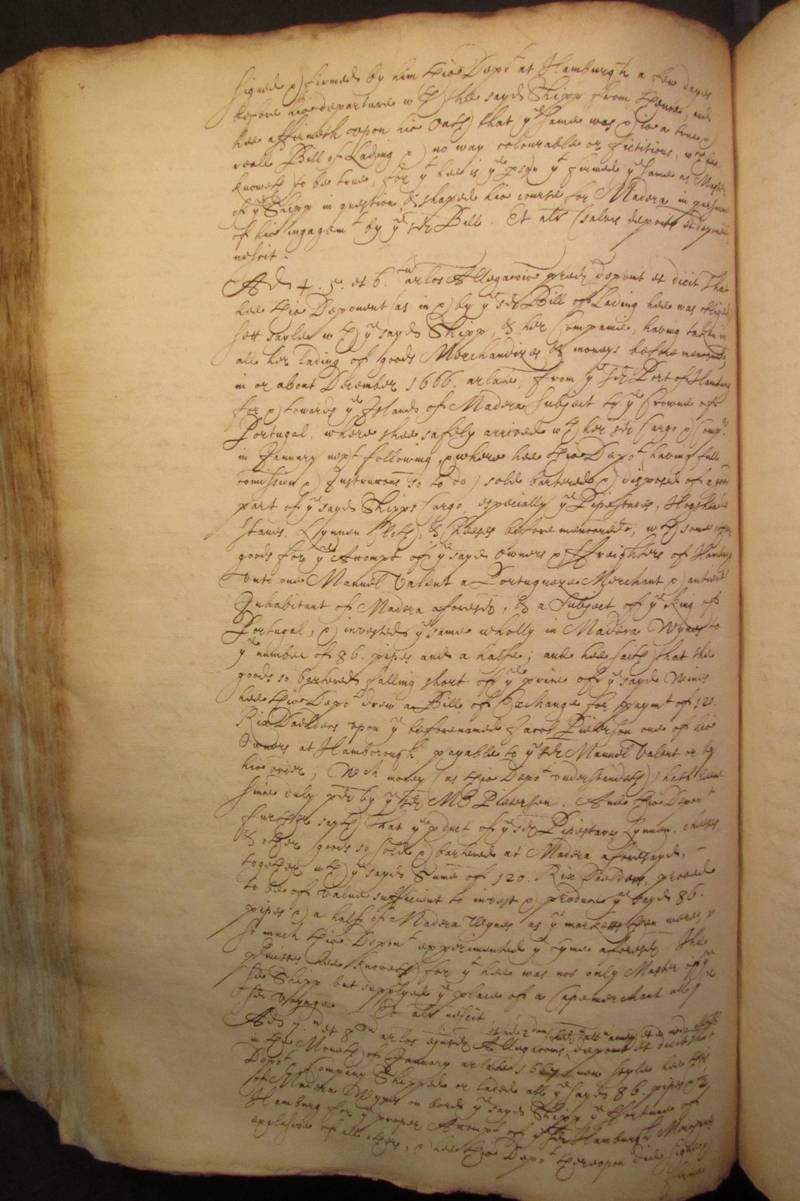 signed & firmed by him this Depont at Hamburgh a few dayes
before his departure wth the sayd Shipp from thence, and
hee affirmeth upon his Oath that ye same was & is a true &
reall Bill of Lading & no way colourable or fictitious, wch hee
knoweth to be true, for yt hee is ye psn yt firmed ye same as Master
of ye Shipp in question & shaped his course for Madera in pursuance
of his ingagemt by ye sd Bill. Et alr (salvis deposit) 
nescit.
Ad 4. 5. et 6. arlos Allegaconis pred deponit et dicit That
hee this Deponent (as in & by ye sd Bill of Lading hee was obliged)
sett sayle wth ye sayd Shipp, & her Companie, having taken in
all her lading of goods Merchandizes & moneys before menconed
in or about December 1666. arlate, from ye sd Port of Hamburg
for & towards ye Islands of Madera subject to ye Crowne of
Portugal, where shee safely arrived wth her sd Cargo & Comp:
in January next following & where hee this Depont having full
comission & Instruccons so to do sold bartered & disposed of a
part of ye sayd Shipps Cargo, especially ye Pipestaves, Hogshead
staves, Lynnen Cloth, & Cheeses before menconed, wth some other
goods for ye Accompt of ye sayd Owners & ffraighters of Hamburg
unto one Manuel Valent a Portuguese Merchant &
Inhabitant of Madera aforesd, & a Subject of ye King of
Portugal, & invested ye same wholly in Madera Wynes to
ye number of 86. pipes and a halfe; and hee saith that the
goods so bartered falling short of ye price of ye sayd Wines
hee this Depont drew a Bill of Exchange for paymt of 120.
Rix Dadlers upon ye beforenamed Jacob Pieterson one of his
Owners at Hamborough payable to ye sd Manuel Valent or
his order, Wch money (as this Depont understandeth) hath been
since duly pd by ye sd Mr Pieterson. And this Depont
further sayth That ye product of ye sd Pipestaves, Lynnen, cheeses,
& other goods so sold & bartered at Madera aforesayd,
together wth ye sayd Summe of 120. Rix Dadlers, proved
to bee of value sufficient to invest & produce ye sayd 86.
pipes & a halfe of Madera Wynes as ye marketts then were
so much this Depont experimented ye tyme aforesd. The
premisses hee knoweth for yt hee was not only Master of ye
sd Shipp but supplyed ye place of a Capemerchant all ye
sd Voyage. Et alr nescit
Ad 7. et 8 arlos Allegaconis deponit et dicit That
in the Moneth of January arlate 1667 new style hee this
Depont & Company Shipped or laded all ye sayd 86. pipes &
of Madera Wynes on bord ye sayd Shipp ye Fortune of
Hamburg for ye proper Accompt of ye sd Hamburgh Merchants
exclusive of all others, & hee this Depont thereupon did signe